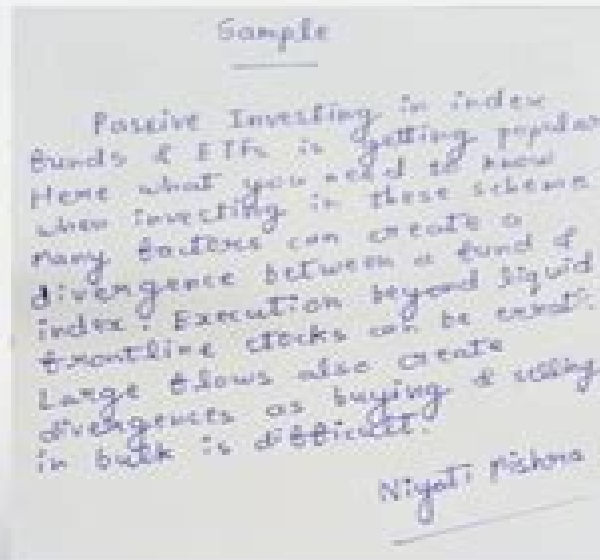 Sample
Passive Investing in index
funds & ETFs is getting popular
Here what you need to know
when investing in these scheme
Many factors can create a
divergence between a fund &
index. Execution beyond liquid
frontline stocks can be errati
Large flows also create
divergences as buying & selling
in bulk is difficult.
Niyati Mishra